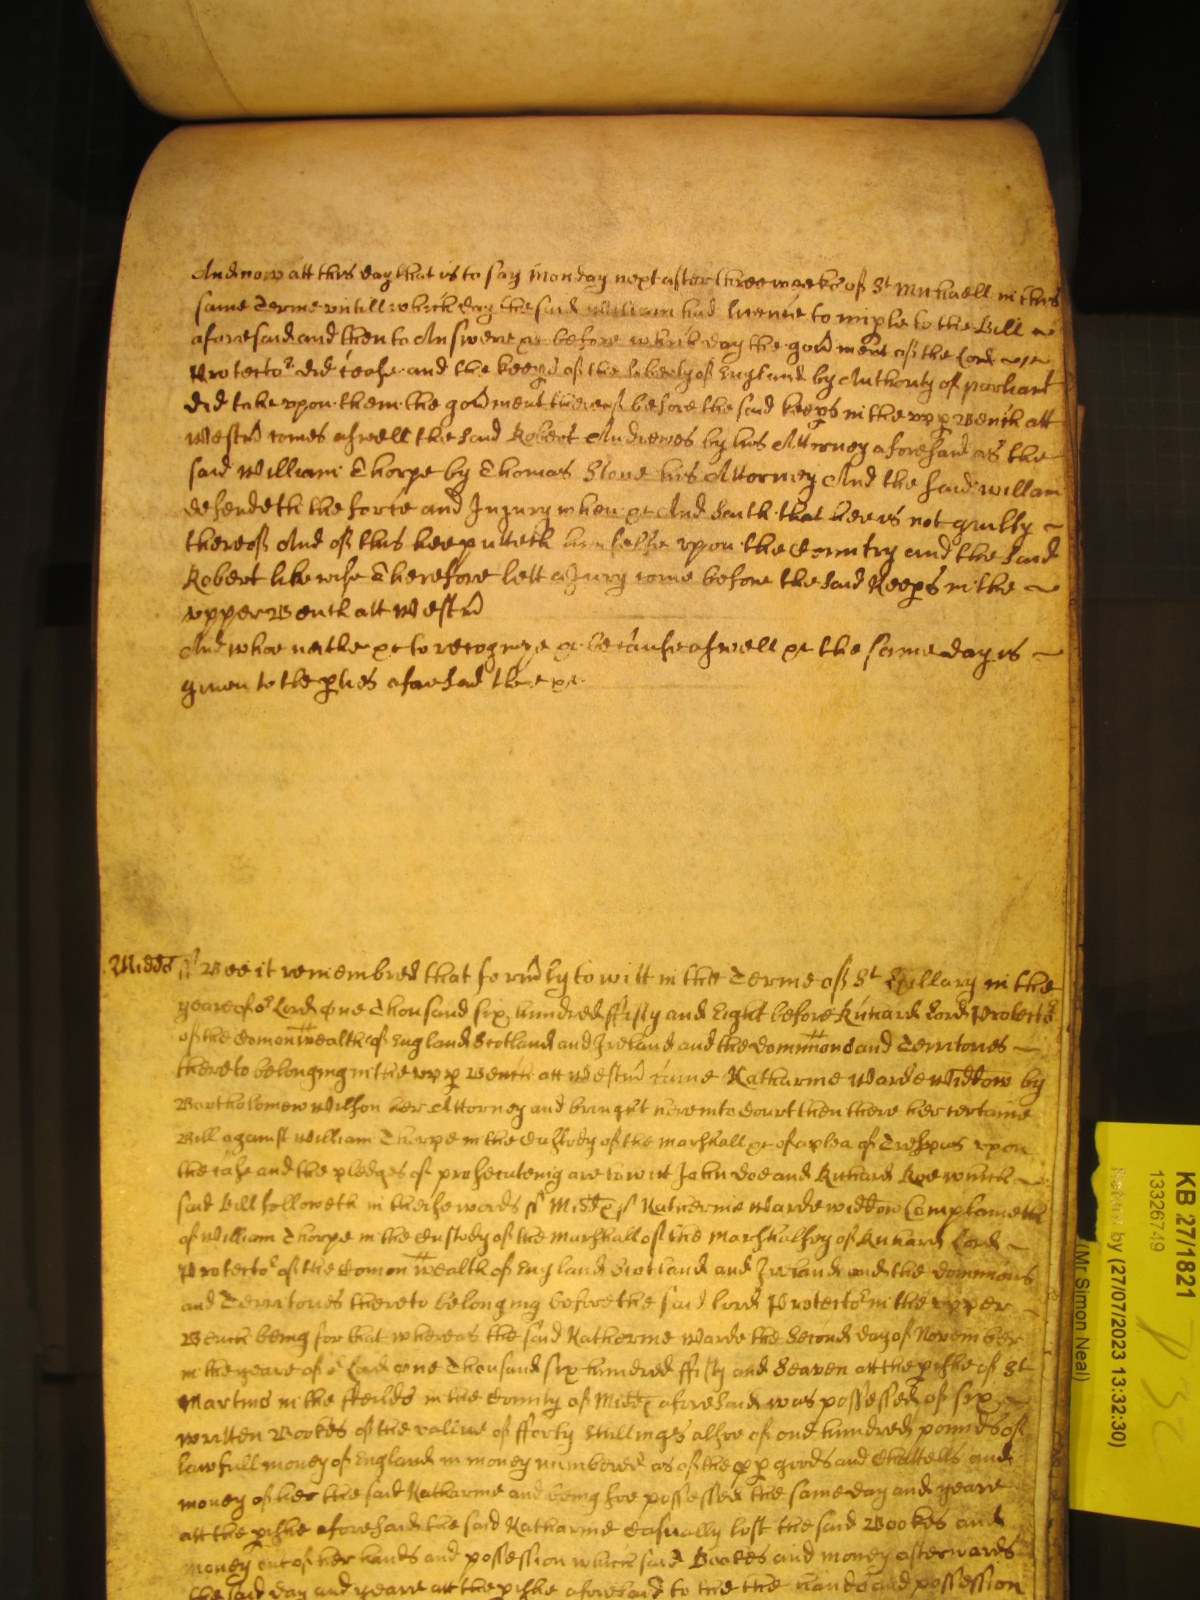 And now att this day that is to say monday next after three weekes of St Michaell in this
same Terme untill which day the said William had licence to imple to the Bill
aforesaid and then to Answere &c before which day the govmt of the Lord
Protector did cease and the keeps of the liberty of England by Authority of parliamt
did take upon them the govment thereof before the said keeps in the upp Bench att
Westm comes aswell the said Robert Andrewes by his Attorney aforesaid as the
said William Thorpe by Thomas Stone his Attorney And the said william
defendeth the force and Injury when &c And saith that hee is not guilty
thereof And of this hee putteth himselfe upon the Country and the said
Robert likewise Therefore lett a Jury come before the said Keeps in the
upper Bench att Westm
And whoe neither &c to recognize &c because aswell &c the same day is
given to the pties aforesaid there &c
Midds ss Bee it remembred that formly to witt in the Terme of St Hillary in the
yeare of or Lord One Thousand six hundred ffifty and Eight before Richard Lord Protector
of the Comonwealth of England Scotland and Ireland and the dominions and Territories
thereto belonging in the upp Bench att Westm came Katharine Warde Widdow by
Bartholomew Wilson her Attorney and brought here into Court then there her certaine
Bill against William Thorpe in the Custody of the marshall &c of a plea of Trespas upon
the case and the pledges of prosecuteing are to witt John Doe and Richard Roe which
said Bill followeth in these words ss Midds ss Katherine Warde widdow Complaineth
of William Thorpe in the Custody of the marshall of the marshalsey of Richard Lord
Protector of the Comon wealth of England Scotland and Ireland and the dominions
and Territories thereto belonging before the said lord Protector in the upper
Bench being for that whereas the said Katharine Warde the second day of November
in the yeare of or Lord One Thousand six hundred ffifty and Seaven att the pishe of St
Martins in the ffeilds in the County of Midds aforesaid was possessed of six
written Bookes of the value of fforty shillings alsoe of one hundred pounds of
lawfull money of England in money numbered as of the pp goods and Chattells and
money of her the said Katharine and being soe possessed the same day and yeare
att the pishe aforesaid the said Katharine Casually lost the said Bookes and
money out of her hands and possession which said Bookes and money afterwards
the said day and yeare att the pishe aforesaid to the the hands and possession
KB 27/1821
13326749
by (27/07/2023 13:32:30)
(Mr Simon Neal)